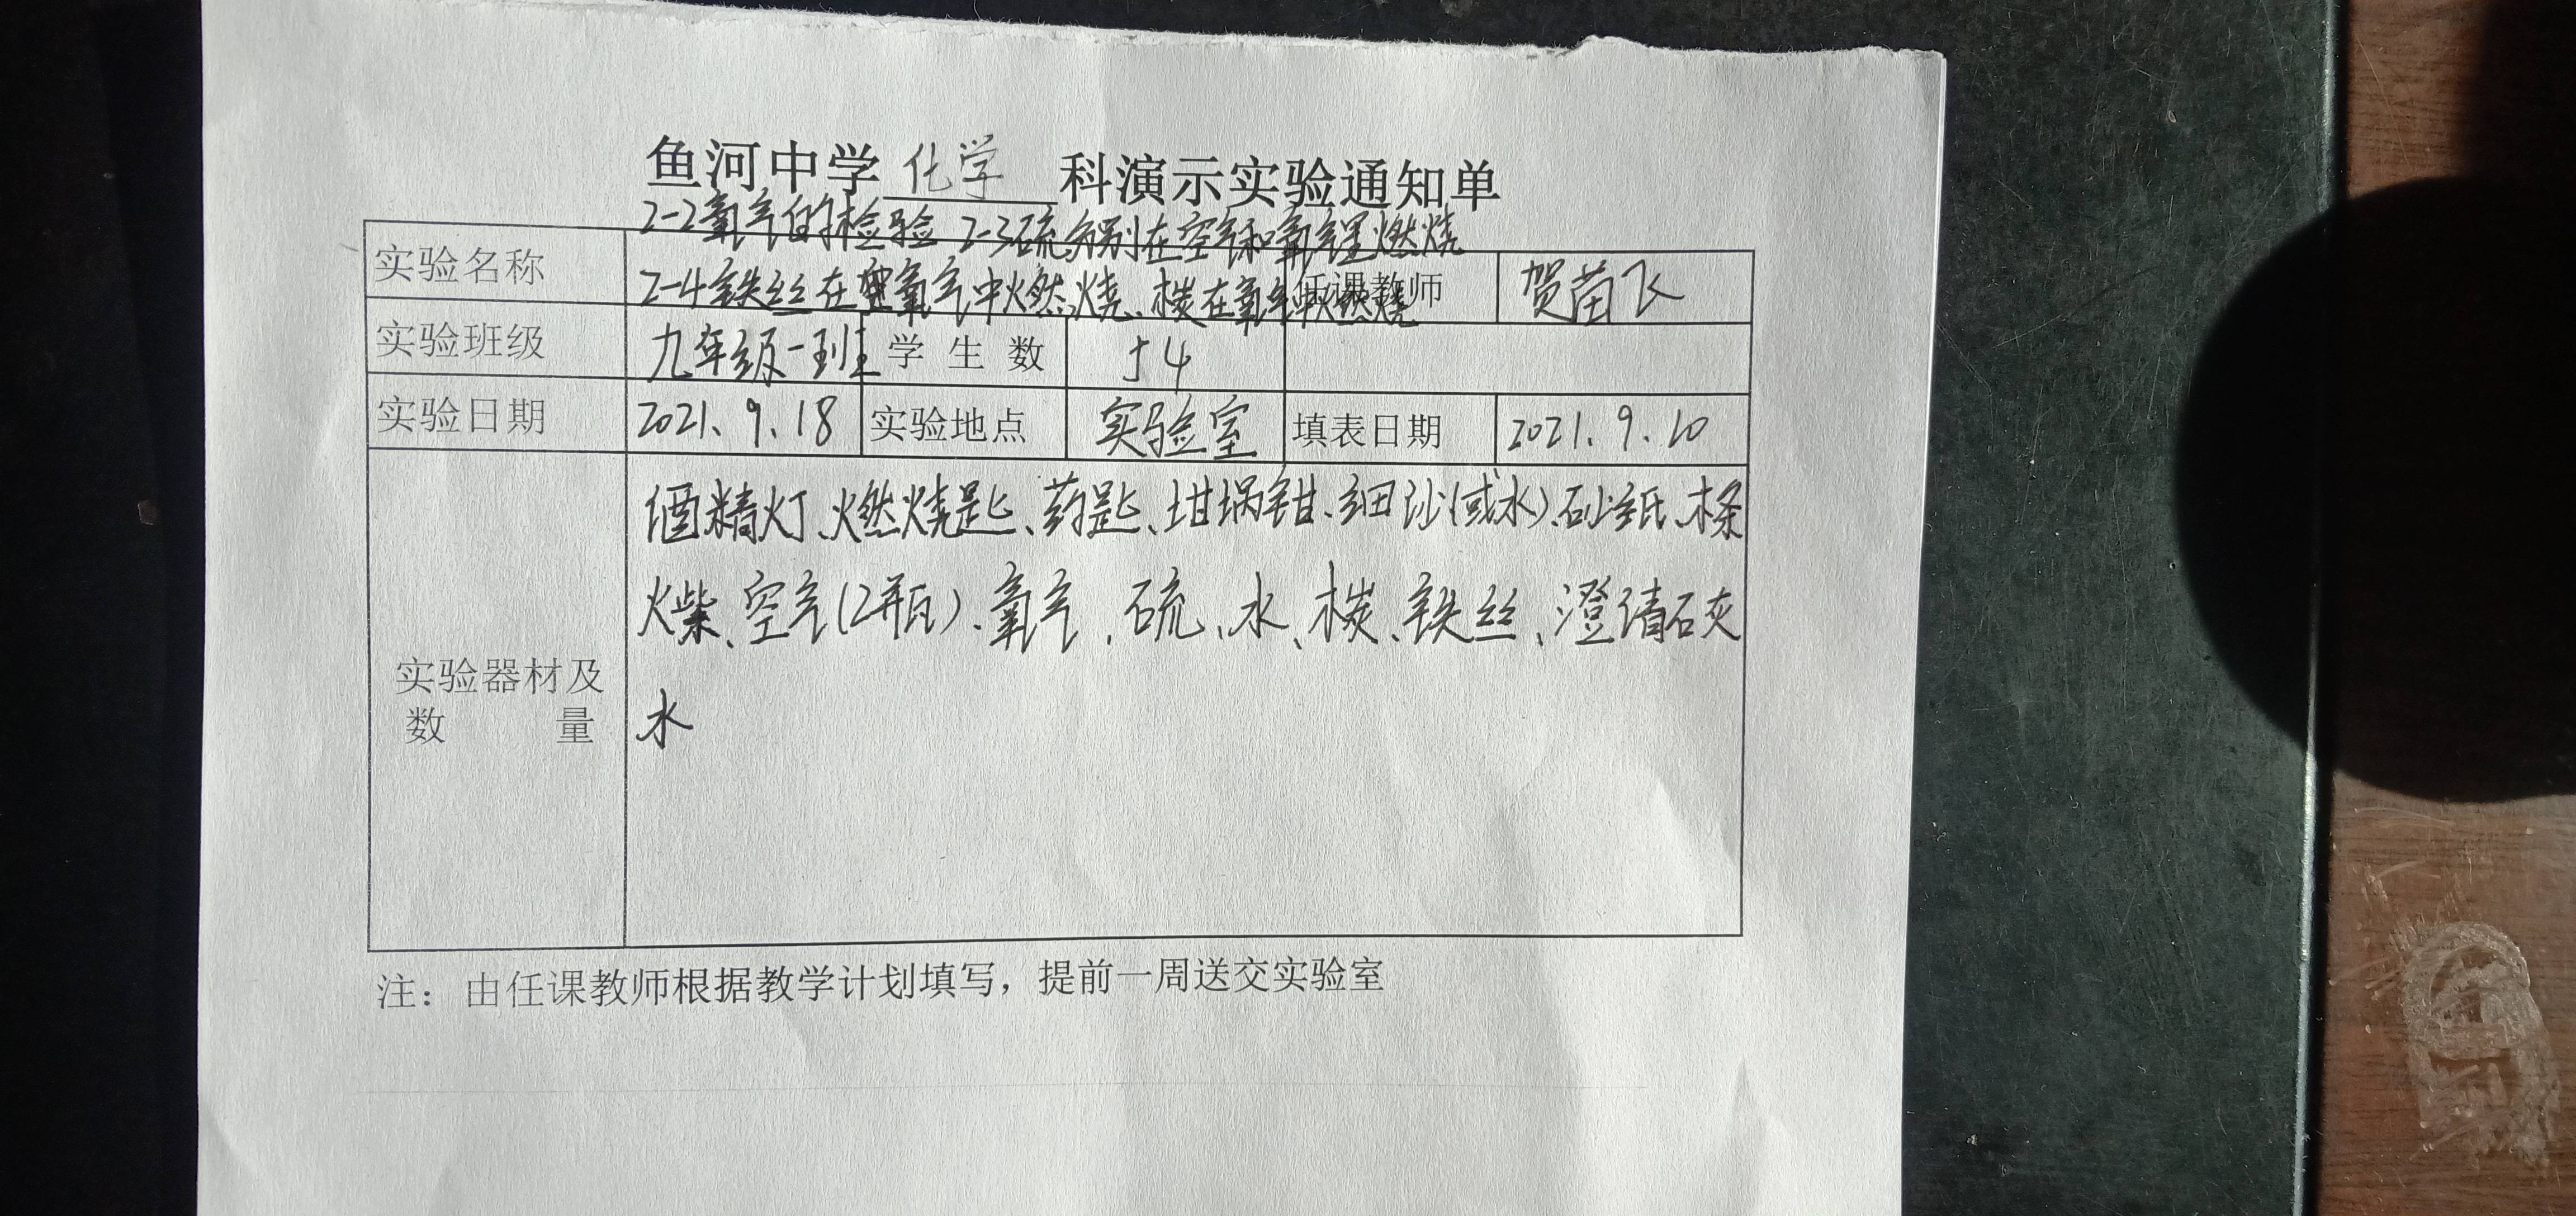 鱼河中学 化学 科演示实验通知单
2-2氧气的检验 2-3硫分别在空气和氧气里燃烧
实验名称 2-4铁丝在氧气中燃烧、木炭在氧气中燃烧 任课教师 贺苗飞
实验班级 九年级一班 学生数 54
实验日期 2021、9、18 实验地点 实验室 填表日期 2021、9、10
酒精灯、燃烧匙、药匙、坩埚钳、细沙(或水)、砂纸、木条
火柴、空气(2瓶)、氧气、硫、水、木炭、铁丝、澄清石灰
水
实验器材及
数量
注：由任课教师根据教学计划填写，提前一周送交实验室